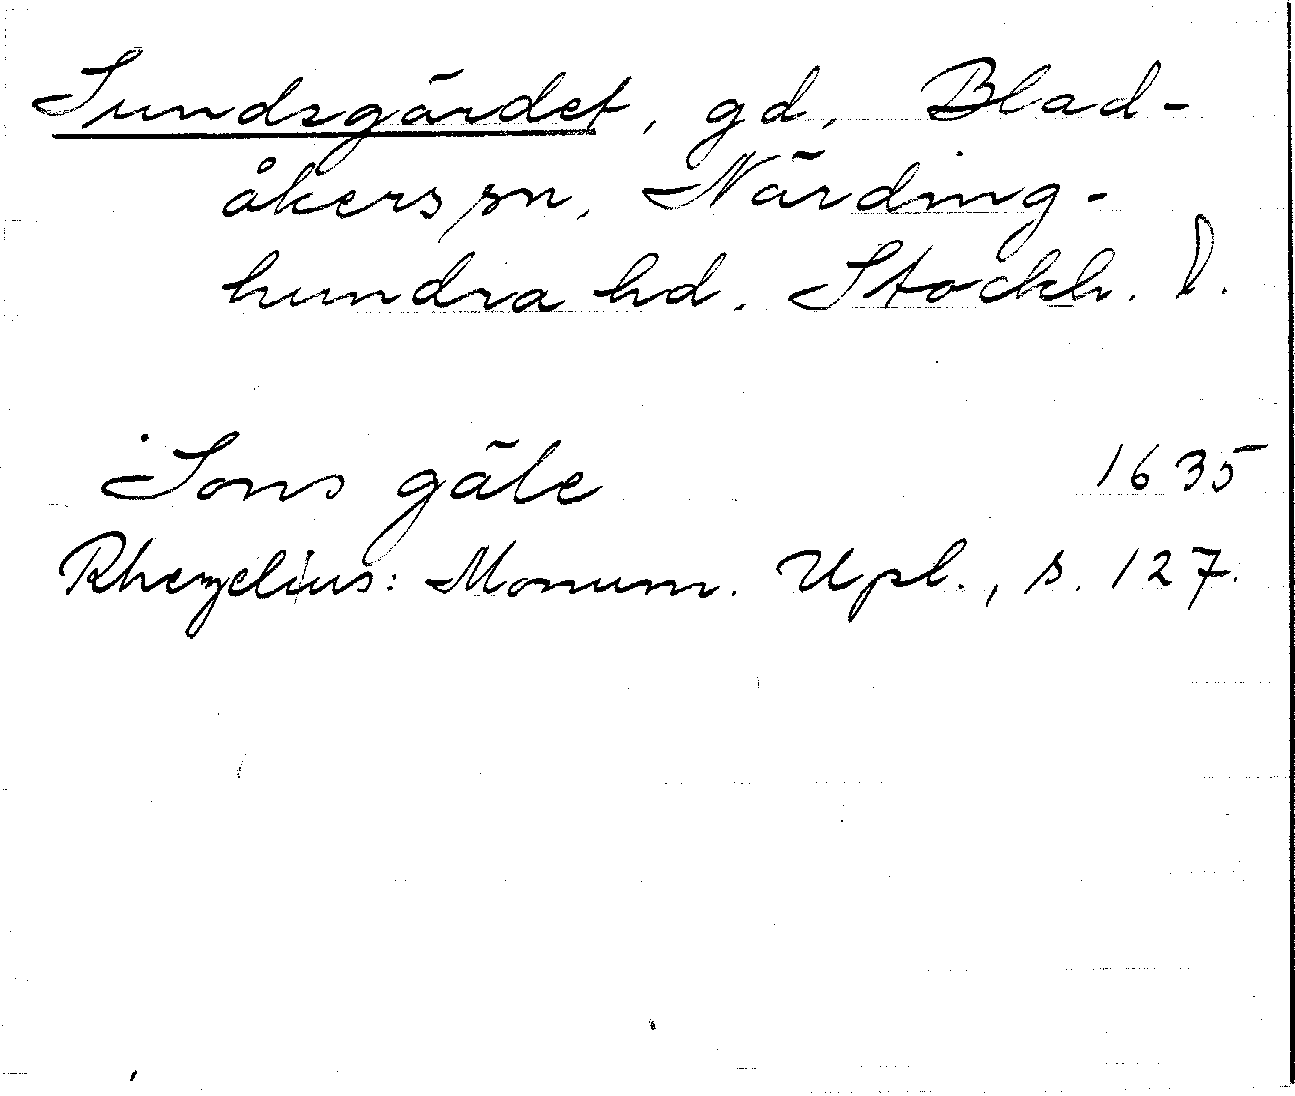 Sundsgärdet, gd, Blad-
åkers sn, Närding-
hundra hd. Stockh. l.
Sons gäle 1635
Rhezelius: Monum. Upl., s. 127.